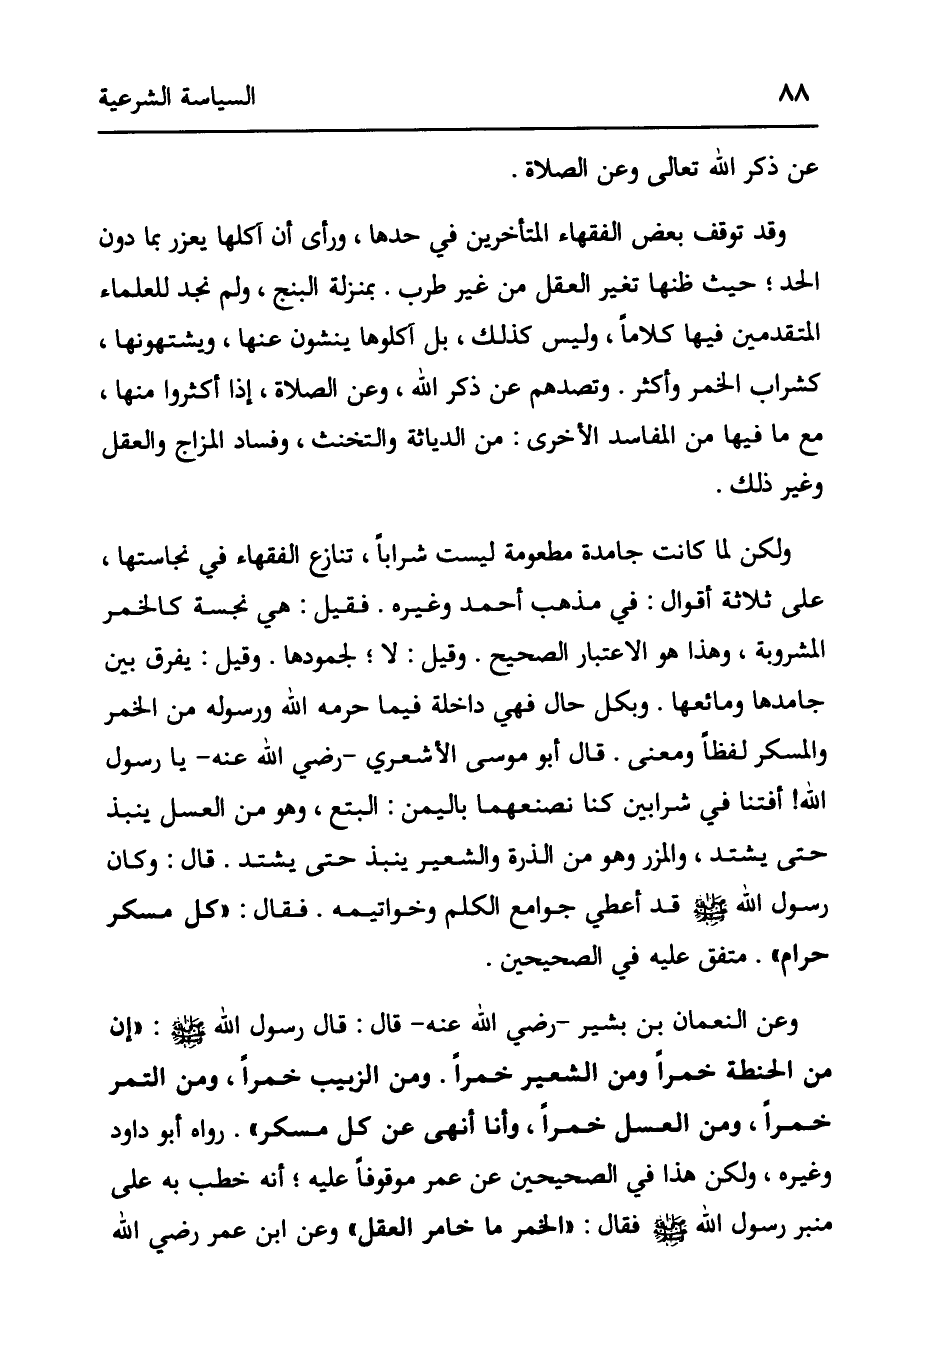 ٨٨ السياسة الشرعية
عن ذكر الله تعالى وعن الصلاة .
وقد توقف بعض الفقهاء المتأخرين في حدها ، ورأى أن آكلها يعزر بما دون
الحد ؛ حيث ظنها تغير العقل من غير طرب . بمنزلة البنج ، ولم نجد للعلماء
المتقدمين فيها كلاماً ، وليس كذلك ، بل آكلوها ينشون عنها ، ويشتهونها ،
كشراب الخمر وأكثر . وتصدهم عن ذكر الله ، وعن الصلاة ، إذا أكثروا منها ،
مع ما فيها من المفاسد الأخرى : من الدياثة والتخنث ، وفساد المزاج والعقل
وغير ذلك .
ولكن لما كانت جامدة مطعومة ليست شراباً ، تنازع الفقهاء في نجاستها ،
على ثلاثة أقوال : في مذهب أحمد وغيره . فقيل : هي نجسة كالخمر
المشروبة ، وهذا هو الاعتبار الصحيح . وقيل : لا ؛ لجمودها . وقيل : يفرق بين
جامدها ومائعها . وبكل حال فهي داخلة فيما حرمه الله ورسوله من الخمر
والمسكر لفظاً ومعنى . قال أبو موسى الأشعري -رضي الله عنه- يا رسول
الله! أفتنا في شرابين كنا نصنعهما باليمن : البتع ، وهو من العسل ينبذ
حتى يشتد ، والمزر وهو من الذرة والشعير ينبذ حتى يشتد . قال : وكان
رسول الله ﷺ قد أعطي جوامع الكلم وخواتيمه . فقال : «كل مسكر
حرام» . متفق عليه في الصحيحين .
وعن النعمان بن بشير -رضي الله عنه- قال : قال رسول الله ﷺ : «إن
من الحنطة خمراً ومن الشعير خمراً . ومن الزبيب خمراً ، ومن التمر
خمراً ، ومن العسل خمراً ، وأنا أنهى عن كل مسكر» . رواه أبو داود
وغيره ، ولكن هذا في الصحيحين عن عمر موقوفاً عليه ؛ أنه خطب به على
منبر رسول الله ﷺ فقال : «الخمر ما خامر العقل» وعن ابن عمر رضي الله